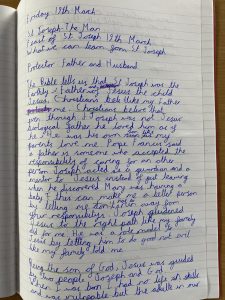 Friday 19th March
St Joseph The Man
Feast of St Joseph 19th March
What we can learn from St Joseph
Protector Father and Husband
The Bible tells us that St Joseph was the
Earthly Father of Jesus the child
Jesus. Christians believe like my Father
me. Christians believe that
even though Joseph was not Jesus
biological father he loved him as if
he was his own son like my
parents love me. Pope Francis said
a father is someone who accepted the
responsibility of caring for an other
person. Joseph acted as a guardian and a
mentor to Jesus instead of just having
when he discovered Mary was having a
baby. This can make me a better person
by telling me don't run away from
your responsibility. Joseph guided
Jesus to the right path like my family
did for me. He was a role model to
Jesus by telling him to do good not evil
like my family told me.
Being the son of God, Jesus was guided
by two people Joseph and God.
When I was born I had no life skills
and was vulnerable but the adults in our